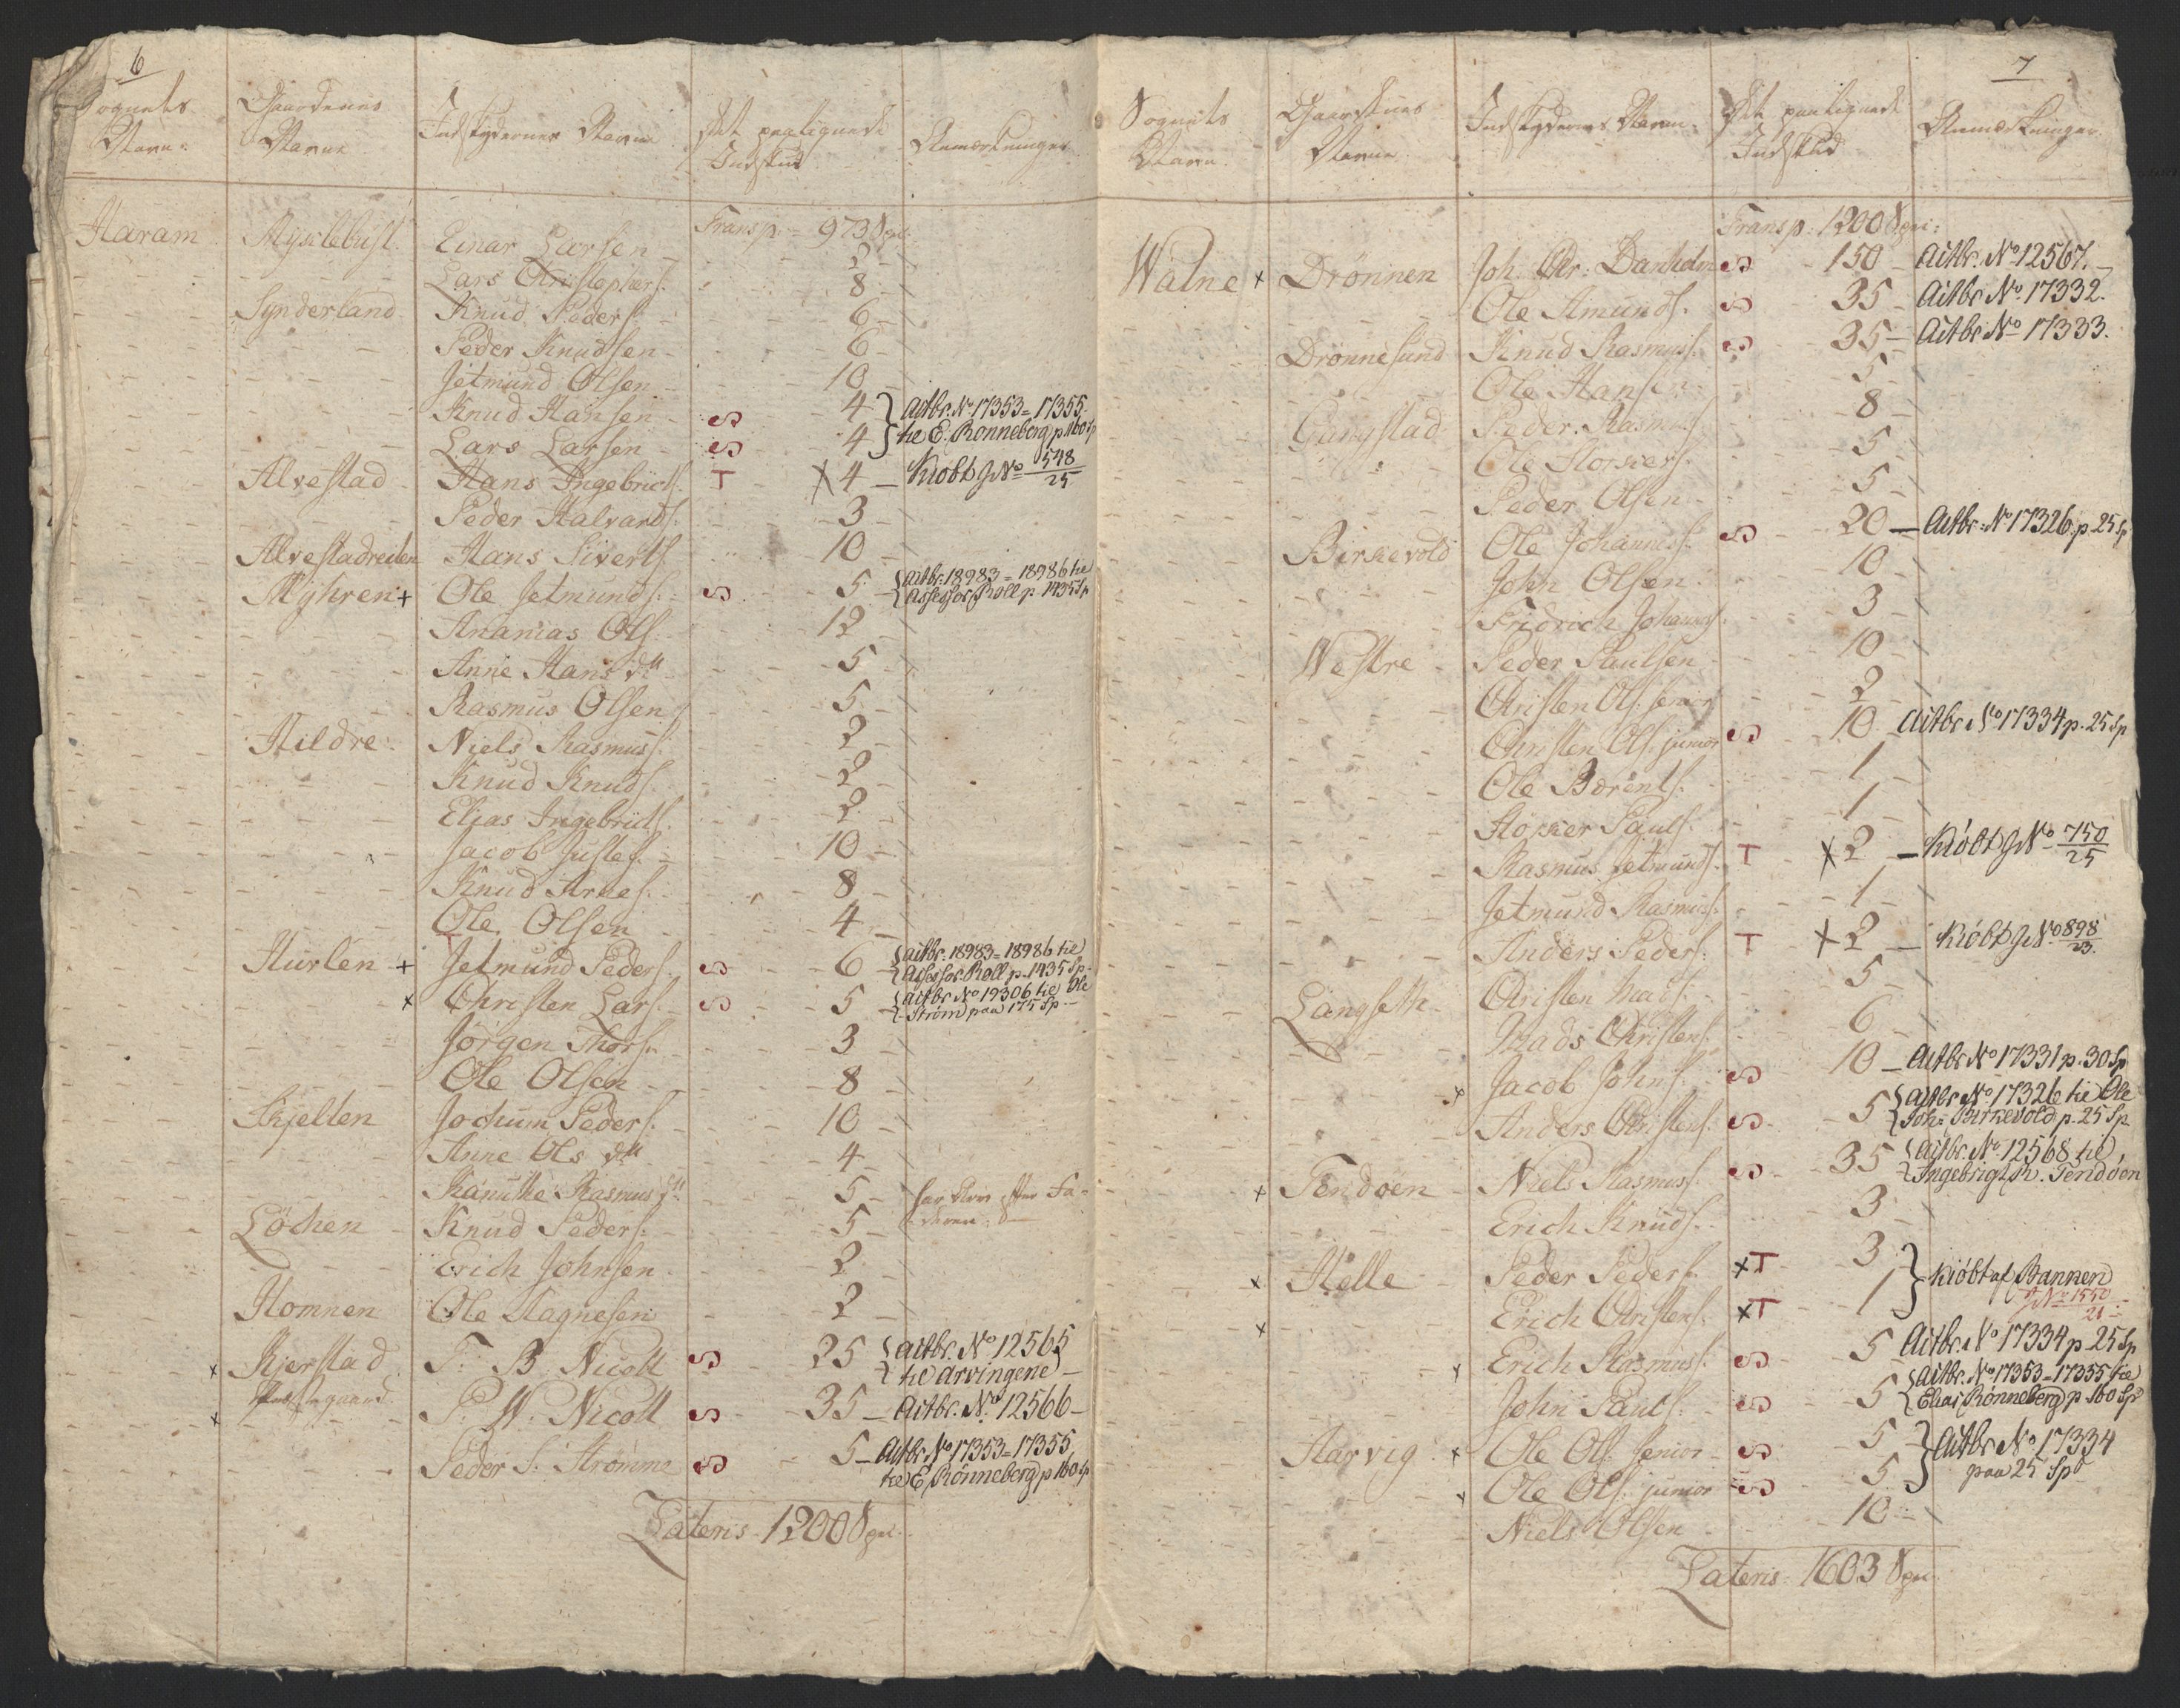 6
Sognets Navn. Gaardenes Navne Indskydernes Navne Det paalignede Indskud Anmærkninger
Transp. 973 Spd.
Haram Myclebust. Einar Larsen 2
Lars Christophers. 8
Synderland Knud Peders. 6
Peder Knudsen 6
Jetmund Olsen 10
Knud Hansen S 4 } Actbr. No 17353=17355.
Lars Larsen S 4 } til E. Rønneberg p 160 Sp
Alvestad Hans Ingebricts. T X 4 Kiøbt J No 548/25
Peder Halvards. 3
Alvestadreiten Hans Siverts. 10
Myhren + Ole Jetmunds. S 5 { Actbr. 18983=18986 til
{ Assessor Roll p. 1435 Sp
Ananias Ols. 12
Anne Hans dtr 5
Rasmus Olsen 5
Hildre Niels Rasmuss. 2
Knud Knuds. 2
Elias Ingebrids. 2
Jacob Justes. 10
Knud Arnes. 8
Ole Olsen 4
Hurlen + Jetmund Peders. S 6 { Actbr. 18983=18986 til
{ Assessor Roll p. 1435 Sp.
x Christen Lars. S 5 { Actbr No 19306 til Ole
{ Strøm paa 175 Sp.
Jørgen Thors. 3
Ole Olsen 8
Skjelten Jochum Peders. 10
Anne Ols dtr 4
Kanutke Rasmus dtr 5 efter Fa-
deren
Løchen Knud Peders. 5
Erich Johnsen 2
Homnen Ole Hagnesen 2
x Kjerstad T. B. Nicoll S 25 { Actbr. No 12565
{ til Arvingene
x P. W. Nicoll S 35 Actbr. No 12566
Peder S. Strømme S 5 Actbr No 17353=17355
til E Rønneberg p 160 Sp
Lateris 1200 Spd.
7
Sognets Navn. Gaardenes Navne Indskydernes Navne. Det paalignede Indskud Anmærkninger
Transp. 1200 Spd:
Watne x Drønnen Joh. Chr. Danholm S 150 Actbr. No 12567.
Ole Amunds. S 35 Actbr No 17332.
Drønnesund Knud Rasmuss. S 35 Actbr No 17333.
Ole Hansen 5
Gangstad Peder Rasmuss. 8
Ole Aslaks. 5
Peder Olsen 5
Birkevold Ole Johanness. S 20 Actbr. No 17326. p. 25 Sp
John Olsen 10
Fridrich Johanness. 3
Westre Peder Paulsen 10
Christen Ols. senior 2
Christen Ols. junior S 10 Actbr No 17334 p. 25 Sp
Ole Bærents. 1
Aslak Pauls. 1
Rasmus Jetmunds. T X 2 Kiøbt J No 750/25
Jetmund Rasmuss. 1
Anders Peders. T X 2 Kiøbt J No 898/23.
Langseth Christen Mads. 5
Mads Christens. 6
x Jacob Johns. S 10 Actbr No 17331 p. 30 Sp
Anders Christens. S 5 { Actbr No 17326 til Ole
{ Joh: Birkevold p. 25 Sp.
x Tendøen Niels Rasmuss. S 35 { Actbr. No 12568 til
{ Ingebrigt R. Tendøen
Erich Knuds. 3
x Helle Peder Peders. xT 3 } Kiøbt af Banken
x Erich Christens. xT 1 } J No 1550/21
x Erich Rasmuss. S 5 Actbr. No 17334 p. 25 Sp
John Pauls. S 5 { Actbr. No 17353=17355 til
{ Elias Rønneberg p 160 Sp
Harvig x Ole Ols. senior S 5 } Actbr No 17334
x Ole Ols. junior S 5 } paa 25 Sp
Niels Olsen 10
Lateris 1603 Spd.